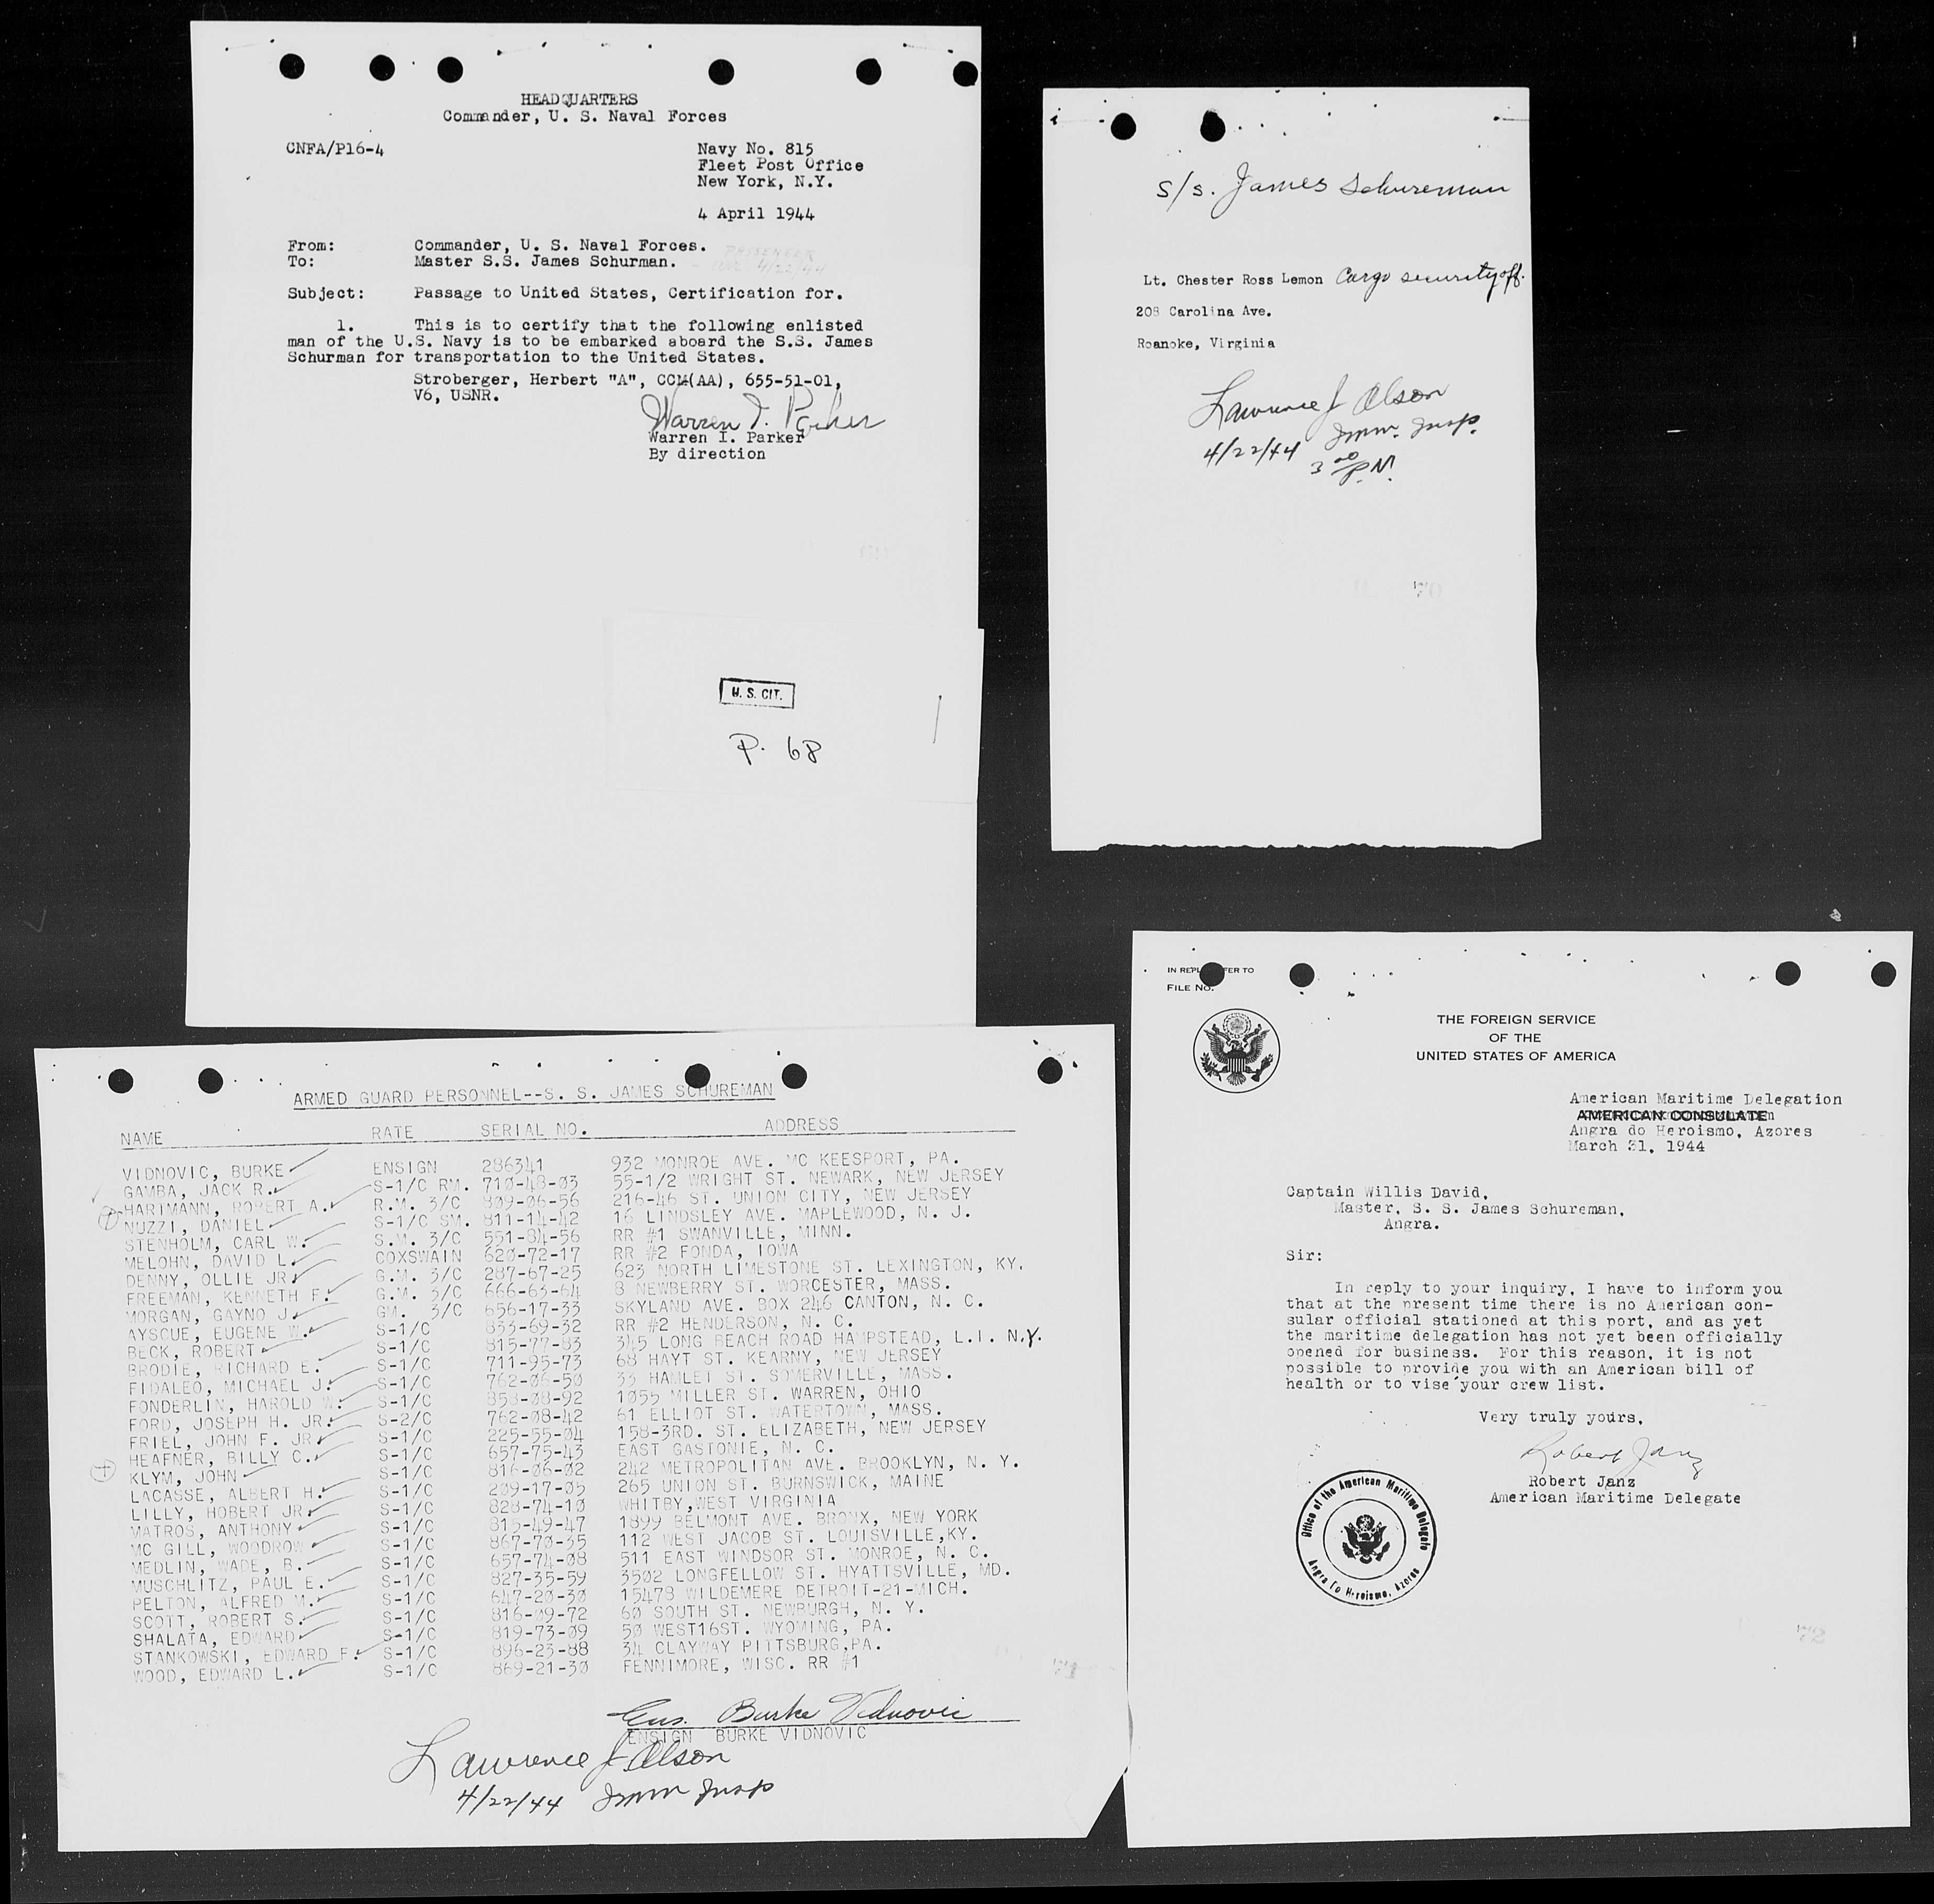 HEADQUARTERS
Commander, U. S. Naval Forces
CNFA/P16-4
Navy No. 815
Fleet Post Office
New York, N.Y.
4 April 1944
From: Commander, U. S. Naval Forces.
To: Master S.S. James Schurman.
PASSENGER
4/22/44
Subject: Passage to United States, Certification for.
1. This is to certify that the following enlisted
man of the U.S. Navy is to be embarked aboard the S.S. James
Schurman for transportation to the United States.
Stroberger, Herbert "A", CCM(AA), 655-51-01,
V6, USNR.
Warren I. Parker
Warren I. Parker
By direction
U. S. CIT.
P. 68
S/S. James Schureman
Lt. Chester Ross Lemon Cargo security off.
208 Carolina Ave.
Roanoke, Virginia
Lawrence J Olson
4/22/44 Imm. Insp.
3 00 P.M.
ARMED GUARD PERSONNEL--S. S. JAMES SCHUREMAN
NAME RATE SERIAL NO. ADDRESS
VIDNOVIC, BURKE ENSIGN 286341 932 MONROE AVE. MC KEESPORT, PA.
GAMBA, JACK R. S-1/C RM. 710-48-03 55-1/2 WRIGHT ST. NEWARK, NEW JERSEY
HARTMANN, ROBERT A. R.M. 3/C 809-06-56 216-46 ST. UNION CITY, NEW JERSEY
NUZZI, DANIEL S-1/C SM. 811-14-42 16 LINDSLEY AVE. MAPLEWOOD, N. J.
STENHOLM, CARL W. S.M. 3/C 551-84-56 RR #1 SWANVILLE, MINN.
MELOHN, DAVID L. COXSWAIN 620-72-17 RR #2 FONDA, IOWA
DENNY, OLLIE JR. G.M. 3/C 287-67-25 623 NORTH LIMESTONE ST. LEXINGTON, KY.
FREEMAN, KENNETH F. G.M. 3/C 666-63-64 8 NEWBERRY ST. WORCESTER, MASS.
MORGAN, GAYNO J. GM. 3/C 656-17-33 SKYLAND AVE. BOX 246 CANTON, N. C.
AYSCUE, EUGENE W. S-1/C 833-69-32 RR #2 HENDERSON, N. C.
BECK, ROBERT S-1/C 815-77-83 345 LONG BEACH ROAD HAMPSTEAD, L.I. N.Y.
BRODIE, RICHARD E. S-1/C 711-95-73 68 HAYT ST. KEARNY, NEW JERSEY
FIDALEO, MICHAEL J. S-1/C 762-06-50 33 HAMLET ST. SOMERVILLE, MASS.
FONDERLIN, HAROLD W. S-1/C 853-08-92 1055 MILLER ST. WARREN, OHIO
FORD, JOSEPH H. JR. S-2/C 762-08-42 61 ELLIOT ST. WATERTOWN, MASS.
FRIEL, JOHN F. JR. S-1/C 225-55-04 158-3RD. ST. ELIZABETH, NEW JERSEY
HEAFNER, BILLY C. S-1/C 657-75-43 EAST GASTONIE, N. C.
KLYM, JOHN S-1/C 816-06-02 242 METROPOLITAN AVE. BROOKLYN, N. Y.
LACASSE, ALBERT H. S-1/C 209-17-05 265 UNION ST. BURNSWICK, MAINE
LILLY, HOBERT JR. S-1/C 828-74-10 WHITBY,WEST VIRGINIA
MATROS, ANTHONY S-1/C 815-49-47 1899 BELMONT AVE. BRONX, NEW YORK
MC GILL, WOODROW S-1/C 867-70-35 112 WEST JACOB ST. LOUISVILLE,KY.
MEDLIN, WADE, B. S-1/C 657-74-08 511 EAST WINDSOR ST. MONROE, N. C.
MUSCHLITZ, PAUL E. S-1/C 827-35-59 3502 LONGFELLOW ST. HYATTSVILLE, MD.
PELTON, ALFRED M. S-1/C 647-20-30 15478 WILDEMERE DETROIT-21-MICH.
SCOTT, ROBERT S. S-1/C 816-09-72 60 SOUTH ST. NEWBURGH, N. Y.
SHALATA, EDWARD S-1/C 819-73-09 50 WEST16ST. WYOMING, PA.
STANKOWSKI, EDWARD F. S-1/C 896-23-88 34 CLAYWAY PITTSBURG,PA.
WOOD, EDWARD L. S-1/C 869-21-30 FENNIMORE, WISC. RR #1
Ens. Burke Vidnovic
ENSIGN BURKE VIDNOVIC
Lawrence J Olson
4/22/44 Imm Insp
IN REPLY REFER TO
FILE NO.
THE FOREIGN SERVICE
OF THE
UNITED STATES OF AMERICA
American Maritime Delegation
AMERICAN CONSULATE
Angra do Heroismo, Azores
March 31, 1944
Captain Willis David,
Master, S. S. James Schureman,
Angra.
Sir:
In reply to your inquiry, I have to inform you
that at the present time there is no American con-
sular official stationed at this port, and as yet
the maritime delegation has not yet been officially
opened for business. For this reason, it is not
possible to provide you with an American bill of
health or to vise your crew list.
Very truly yours,
Robert Janz
Robert Janz
American Maritime Delegate
Office of the American Maritime Delegate
Angra Do Heroismo, Azores